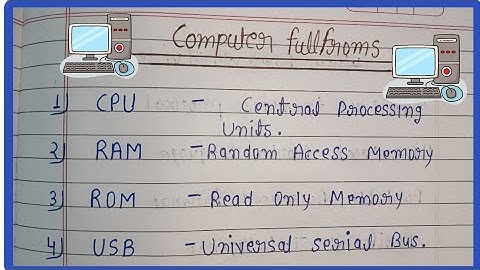 Computer fullfroms
1) CPU - Central Processing
Units.
2) RAM - Random Access Memory
3) ROM - Read Only Memory
4) USB - Universal Serial Bus.